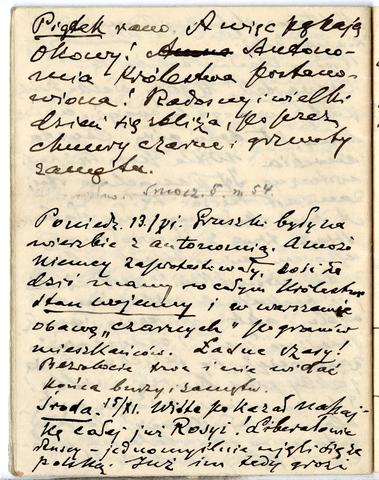 Piątek rano. A więc pękają
okowy! Autono-
mia Królestwa postano-
wiona! Radosny i wielki
dzień się zbliża, poprzez
chmury czarne i grzmoty
zamętu.
Smocz. 5. m. 54.
Poniedz. 13/XI. Gruszki były na
wierzbie z autonomią. A może
niemcy zaprotestowały, dość że
dziś mamy w całym Królestwie
stan wojenny i w warszawie
obawę „czarnych" pogromów
mieszkańców. Ładne czasy!
Bezrobocie trwa i nie widać
końca burzy i zamętu.
Środa. 15/XI. Witte pokazał
całej już Rosyi! Liberałowie
ruscy - jednomyślnie ujęli się za
polską. Już im tedy grozi